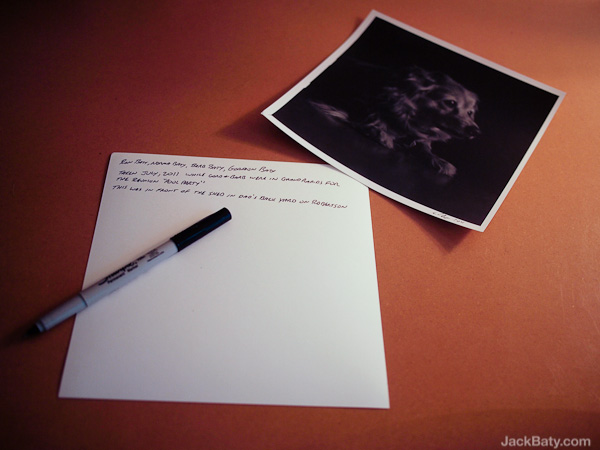 Ron Baty, Norma Baty, Barb Baty, Gordon Baty
Taken July, 2011 while Gord & Barb were in Grand Rapids for
the reunion "Pool Party"
This was in front of the shed in Dad's back yard on Robertson
JackBaty.com